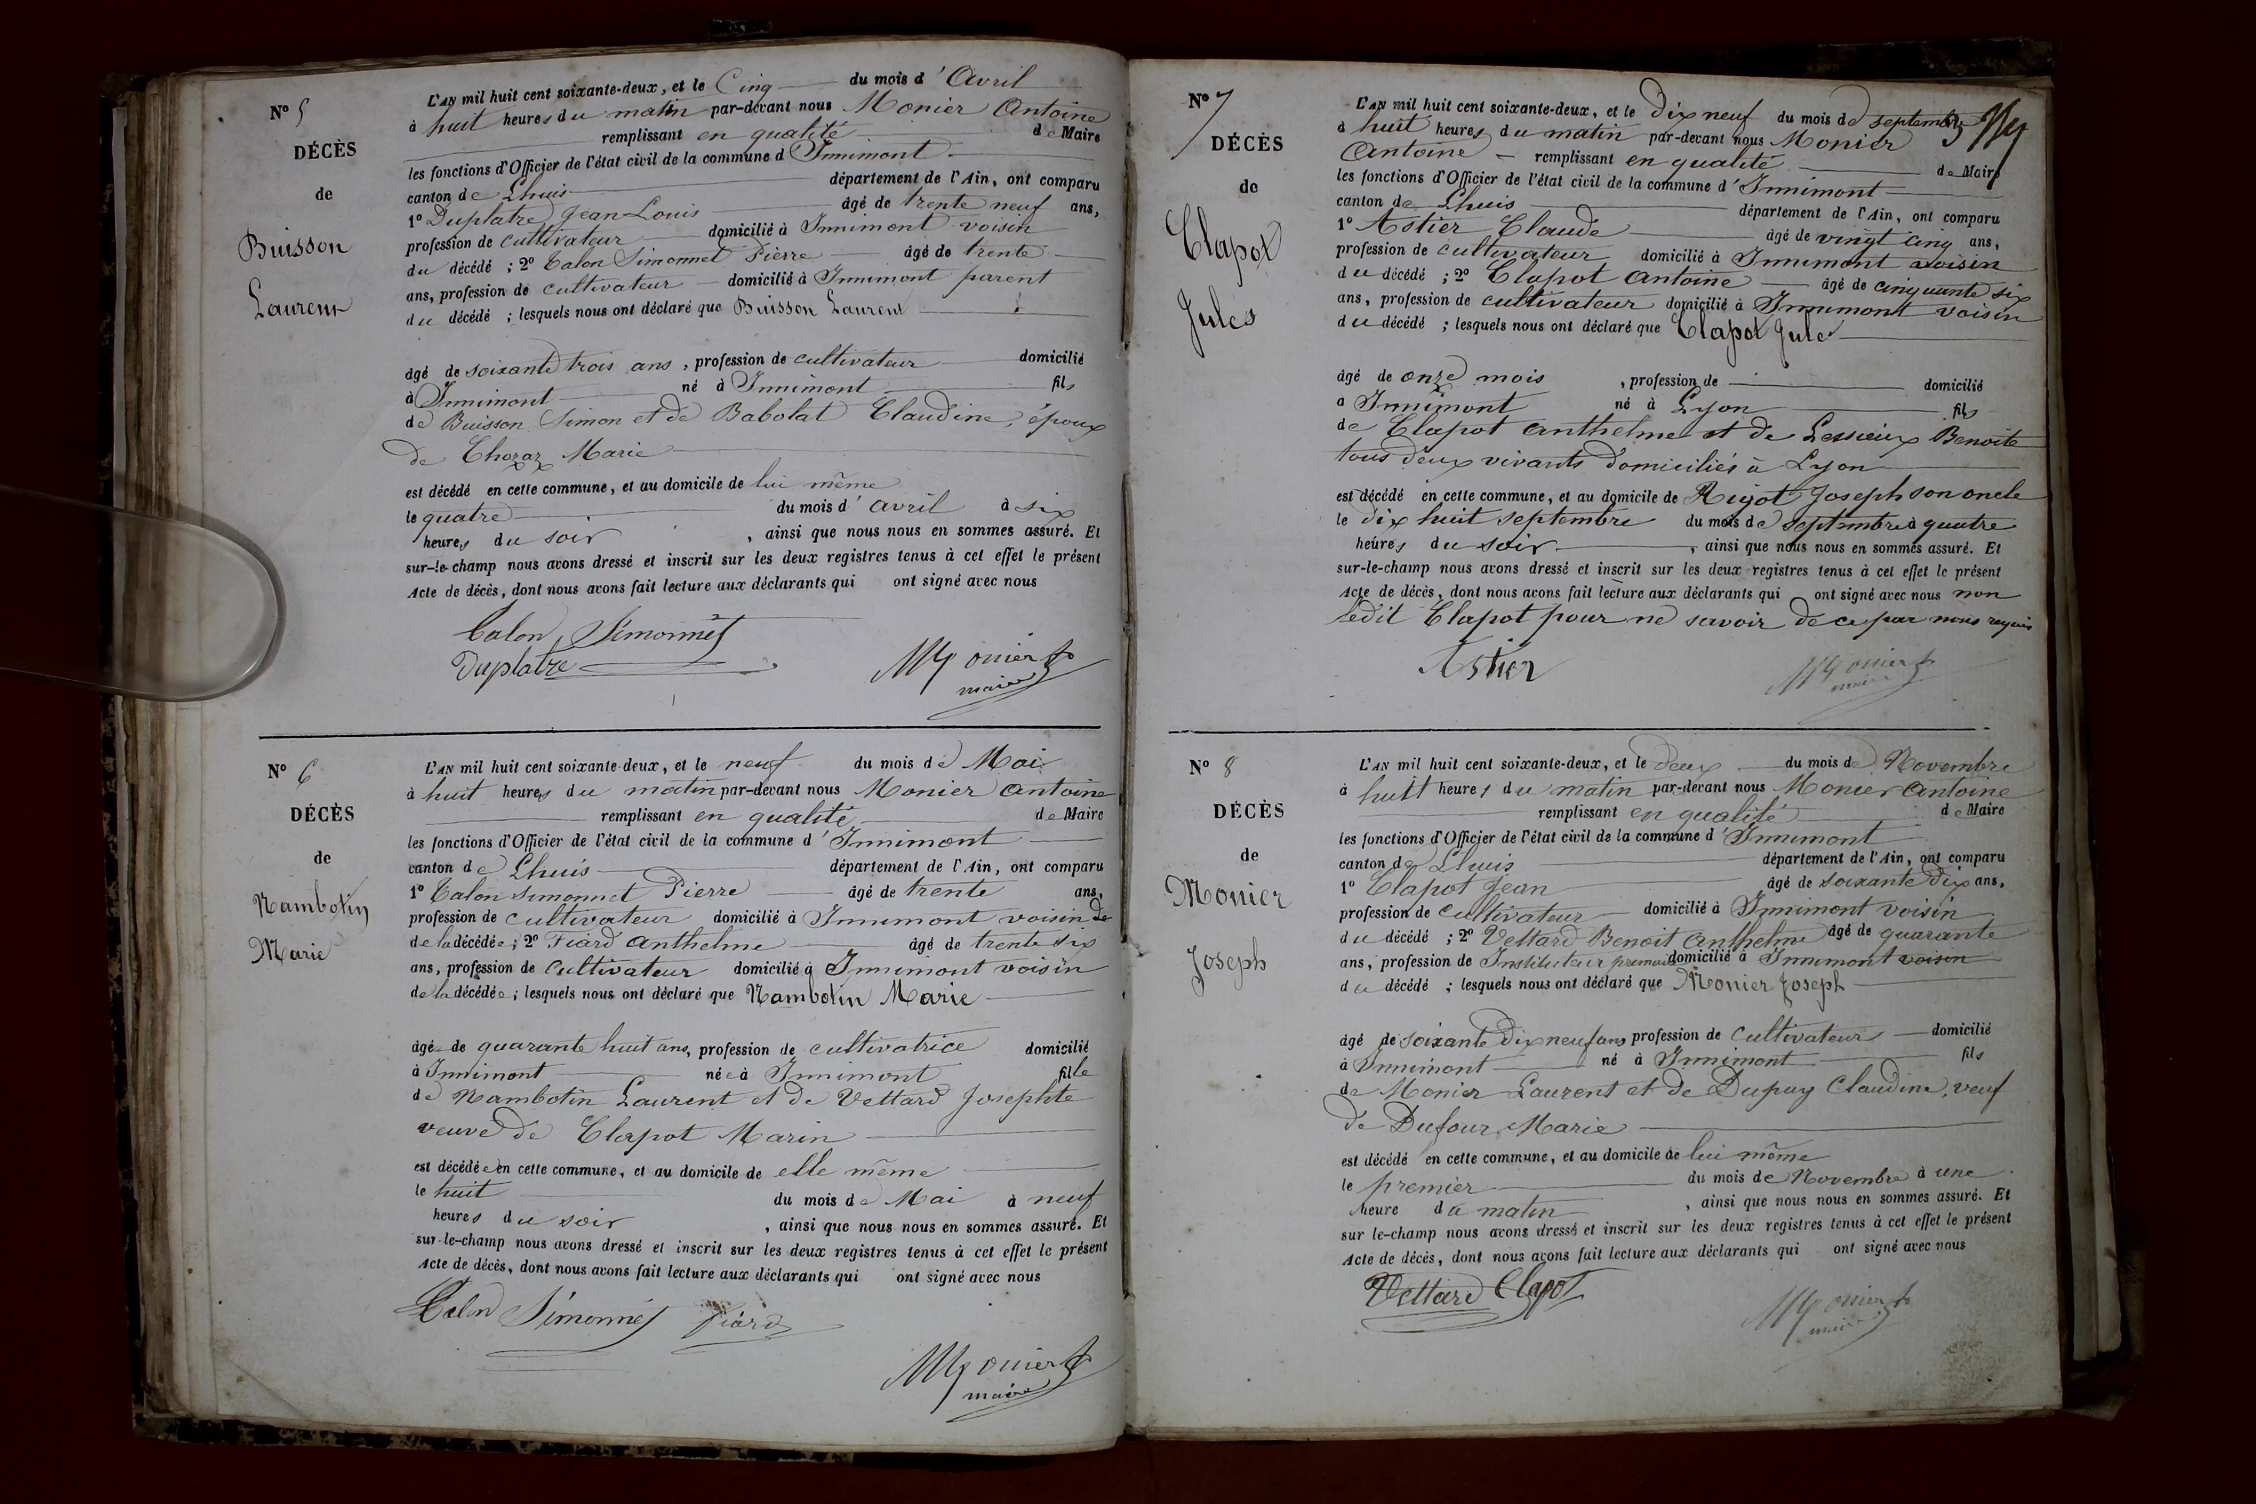 N° 5
DÉCÈS
de
Buisson
Laurent
L'AN mil huit cent soixante-deux, et le Cinq du mois d'Avril
à huit heures du matin par-devant nous Monier Antoine
remplissant en qualité de Maire
les fonctions d'Officier de l'état civil de la commune d Innimont
canton de Lhuis département de l'Ain, ont comparu
1° Duplatre Jean-Louis âgé de trente neuf ans,
profession de cultivateur domicilié à Innimont voisin
du décédé ; 2° Calon Simonnet Pierre âgé de trente
ans, profession de cultivateur domicilié à Innimont parent
du décédé ; lesquels nous ont déclaré que Buisson Laurent
âgé de soixante trois ans, profession de cultivateur domicilié
à Innimont né à Innimont fils
de Buisson Simon et de Babolat Claudine, époux
de Chozaz Marie
est décédé en cette commune, et au domicile de lui même
le quatre du mois d'avril à six
heures du soir, ainsi que nous nous en sommes assuré. Et
sur-le-champ nous avons dressé et inscrit sur les deux registres tenus à cet effet le présent
Acte de décès, dont nous avons fait lecture aux déclarants qui ont signé avec nous
Calon Simonnet
Duplatre
Monier
maire
N° 6
DÉCÈS
de
Nambotin
Marie
L'AN mil huit cent soixante-deux, et le neuf du mois de Mai
à huit heures du matin par-devant nous Monier Antoine
remplissant en qualité de Maire
les fonctions d'Officier de l'état civil de la commune d'Innimont
canton de Lhuis département de l'Ain, ont comparu
1° Calon Simonnet Pierre âgé de trente ans,
profession de cultivateur domicilié à Innimont voisin de
de la décédée ; 2° Fiard Anthelme âgé de trente six
ans, profession de cultivateur domicilié à Innimont voisin
de la décédée ; lesquels nous ont déclaré que Nambotin Marie
âgé de quarante huit ans, profession de cultivatrice domicilié
à Innimont née à Innimont fille
de Nambotin Laurent et de Vettard Josephte
veuve de Clapot Marin
est décédée en cette commune, et au domicile de elle même
le huit du mois de Mai à neuf
heures du soir, ainsi que nous nous en sommes assuré. Et
sur-le-champ nous avons dressé et inscrit sur les deux registres tenus à cet effet le présent
Acte de décès, dont nous avons fait lecture aux déclarants qui ont signé avec nous
Calon Simonnet Fiard
Monier
maire
N° 7
DÉCÈS
de
Clapot
Jules
L'AN mil huit cent soixante-deux, et le dix neuf du mois de septembre
à huit heures du matin par-devant nous Monier
Antoine remplissant en qualité de Maire
les fonctions d'Officier de l'état civil de la commune d'Innimont
canton de Lhuis département de l'Ain, ont comparu
1° Astier Claude âgé de vingt cinq ans,
profession de cultivateur domicilié à Innimont voisin
du décédé ; 2° Clapot Antoine âgé de cinquante six
ans, profession de cultivateur domicilié à Innimont voisin
du décédé ; lesquels nous ont déclaré que Clapot Jules
âgé de onze mois, profession de domicilié
à Innimont né à Lyon fils
de Clapot Anthelme et de Lessieux Benoite
tous deux vivants domiciliés à Lyon
est décédé en cette commune, et au domicile de Joseph son oncle
le dix huit septembre du mois de septembre à quatre
heures du soir, ainsi que nous nous en sommes assuré. Et
sur-le-champ nous avons dressé et inscrit sur les deux registres tenus à cet effet le présent
Acte de décès, dont nous avons fait lecture aux déclarants qui ont signé avec nous non
ledit Clapot pour ne savoir de ce par nous requis
Astier
Monier
maire
N° 8
DÉCÈS
de
Monier
Joseph
L'AN mil huit cent soixante-deux, et le deux du mois de Novembre
à huit heures du matin par-devant nous Monier Antoine
remplissant en qualité de Maire
les fonctions d'Officier de l'état civil de la commune d'Innimont
canton de Lhuis département de l'Ain, ont comparu
1° Clapot Jean âgé de soixante dix ans,
profession de cultivateur domicilié à Innimont voisin
du décédé ; 2° Vettard Benoit Anthelme âgé de quarante
ans, profession de Instituteur domicilié à Innimont voisin
du décédé ; lesquels nous ont déclaré que Monier Joseph
âgé de soixante dix neuf ans profession de cultivateur domicilié
à Innimont né à Innimont fils
de Monier Laurent et de Dupuy Claudine, veuf
de Dufour Marie
est décédé en cette commune, et au domicile de lui même
le premier du mois de Novembre à une
heure du matin, ainsi que nous nous en sommes assuré. Et
sur le-champ nous avons dressé et inscrit sur les deux registres tenus à cet effet le présent
Acte de décès, dont nous avons fait lecture aux déclarants qui ont signé avec nous
Vettard Clapot
Monier
maire